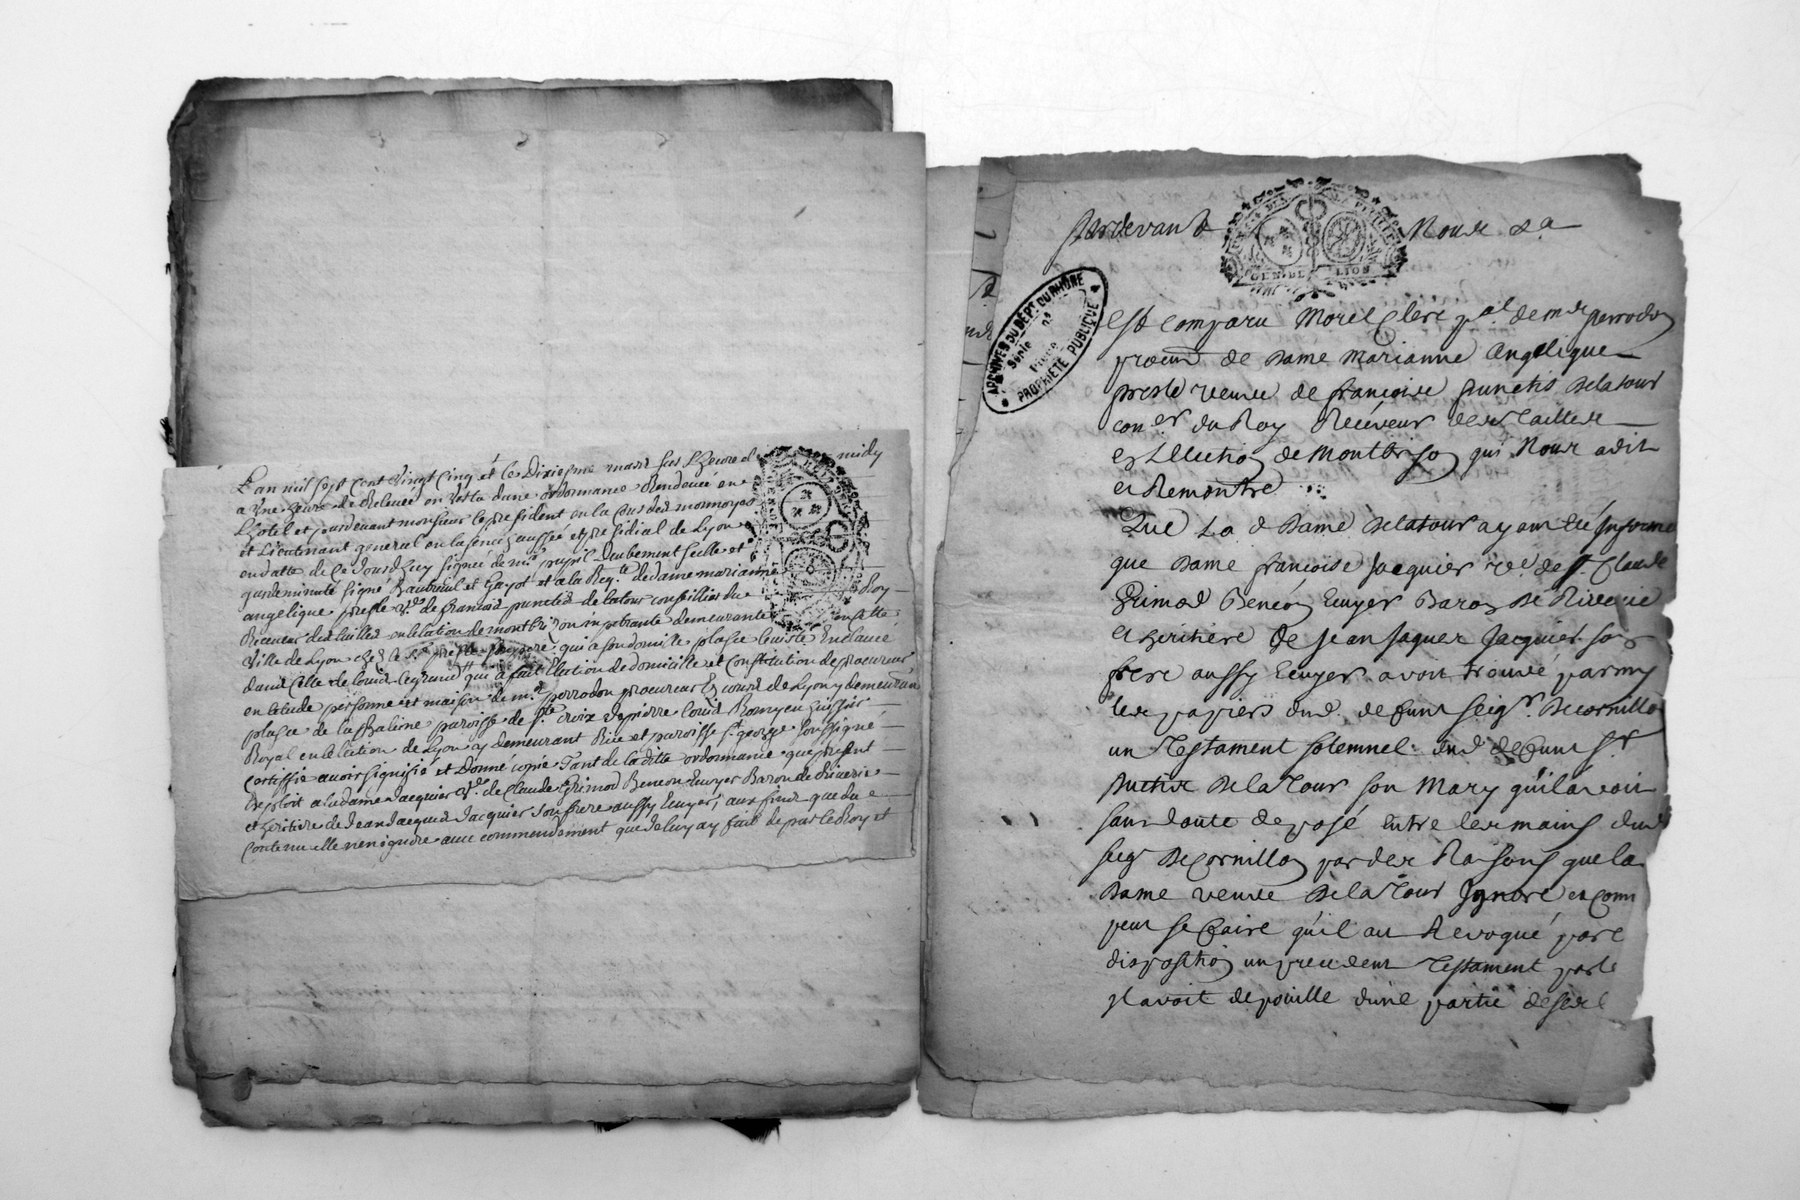 L'an mil sept Cent Vingt Cinq et le Dixiesme mars sus L'heure de midy
a Une heure de Relevée en Vertu dune ordonnance Rendeue en
L'hotel et pardevant monsieur le president en la Cour des monnoyes
et Lieutenant general en la senechaussée et presidial de Lyon
en datte de Ce Jourdhuy signée de mr. pupil Daubement scellé et
garde minute signé Baubreul et Gayot et a la Reqte. de dame marianne
angelique presle Vve. de francois punctis de latour conseillier du Roy
Receveur des tailles en lelation de montbrison instante demeurante en cette
Ville de Lyon chez le Sr. presle qui a son domicile place Louis le
dans Celle de Louis Legrand qui a fait Election de domicille et Constitution de procureur
en letude personne et maison de mr. perrodon procureur Es cours de Lyon y demeurant
place de la Baleine paroisse de Ste. Croix Je pierre Louis Romyeu huissier
Royal en lelation de Lyon y demeurant Rue et paroisse st. george soussigné
Certiffie avoir signifié et Donné copie Tant de la ditte ordonnance que present
Exploit a la dame Jacquier Vve. de Claude Grimod Beneon Ecuyer Baron de Riverie
et heritiere de Jean Jacques Jacquier son frere aussy Ecuyer, aux fins que du
Contenu elle nen ignore avec commendement que Je luy ay fait de par le Roy et
Pardevant Nous Ca
GEN. DE LION
ARCHIVES DU DÉPT. DU RHÔNE
Série nº
Pièce
PROPRIÉTÉ PUBLIQUE
Est Comparu Morel Clerc pal. de mre perrodon
procur de Dame Marianne Angelique
presle veuve de françois punctis Delatour
coner du Roy Receveur des Tailles
en L'Election de Montbrison qui Nous a dit
et Remontré
Que La d Dame Delatour ayant été Informé
que Dame françoise Jacquier ve. de Sr Claude
Grimod Beneon Ecuyer Baron De Riverie
et heritiere de Jean Jaques Jacquier son
frere aussy Ecuyer avoit trouvé parmy
les papiers dud. defunt seigr. De cornillon
un Testament solemnel dud defunt Sr
puctis De la Tour son Mary qu'il avoit
sans doute deposé Entre les mains dud
seigr De Cornillon par des Raisons que la
Dame veuve De la Tour Ignore et Comm
peut se faire qu'il ait Revoqué par c
disposition un precedent Testament par le
Il avoit depouillé d'une partie de ses